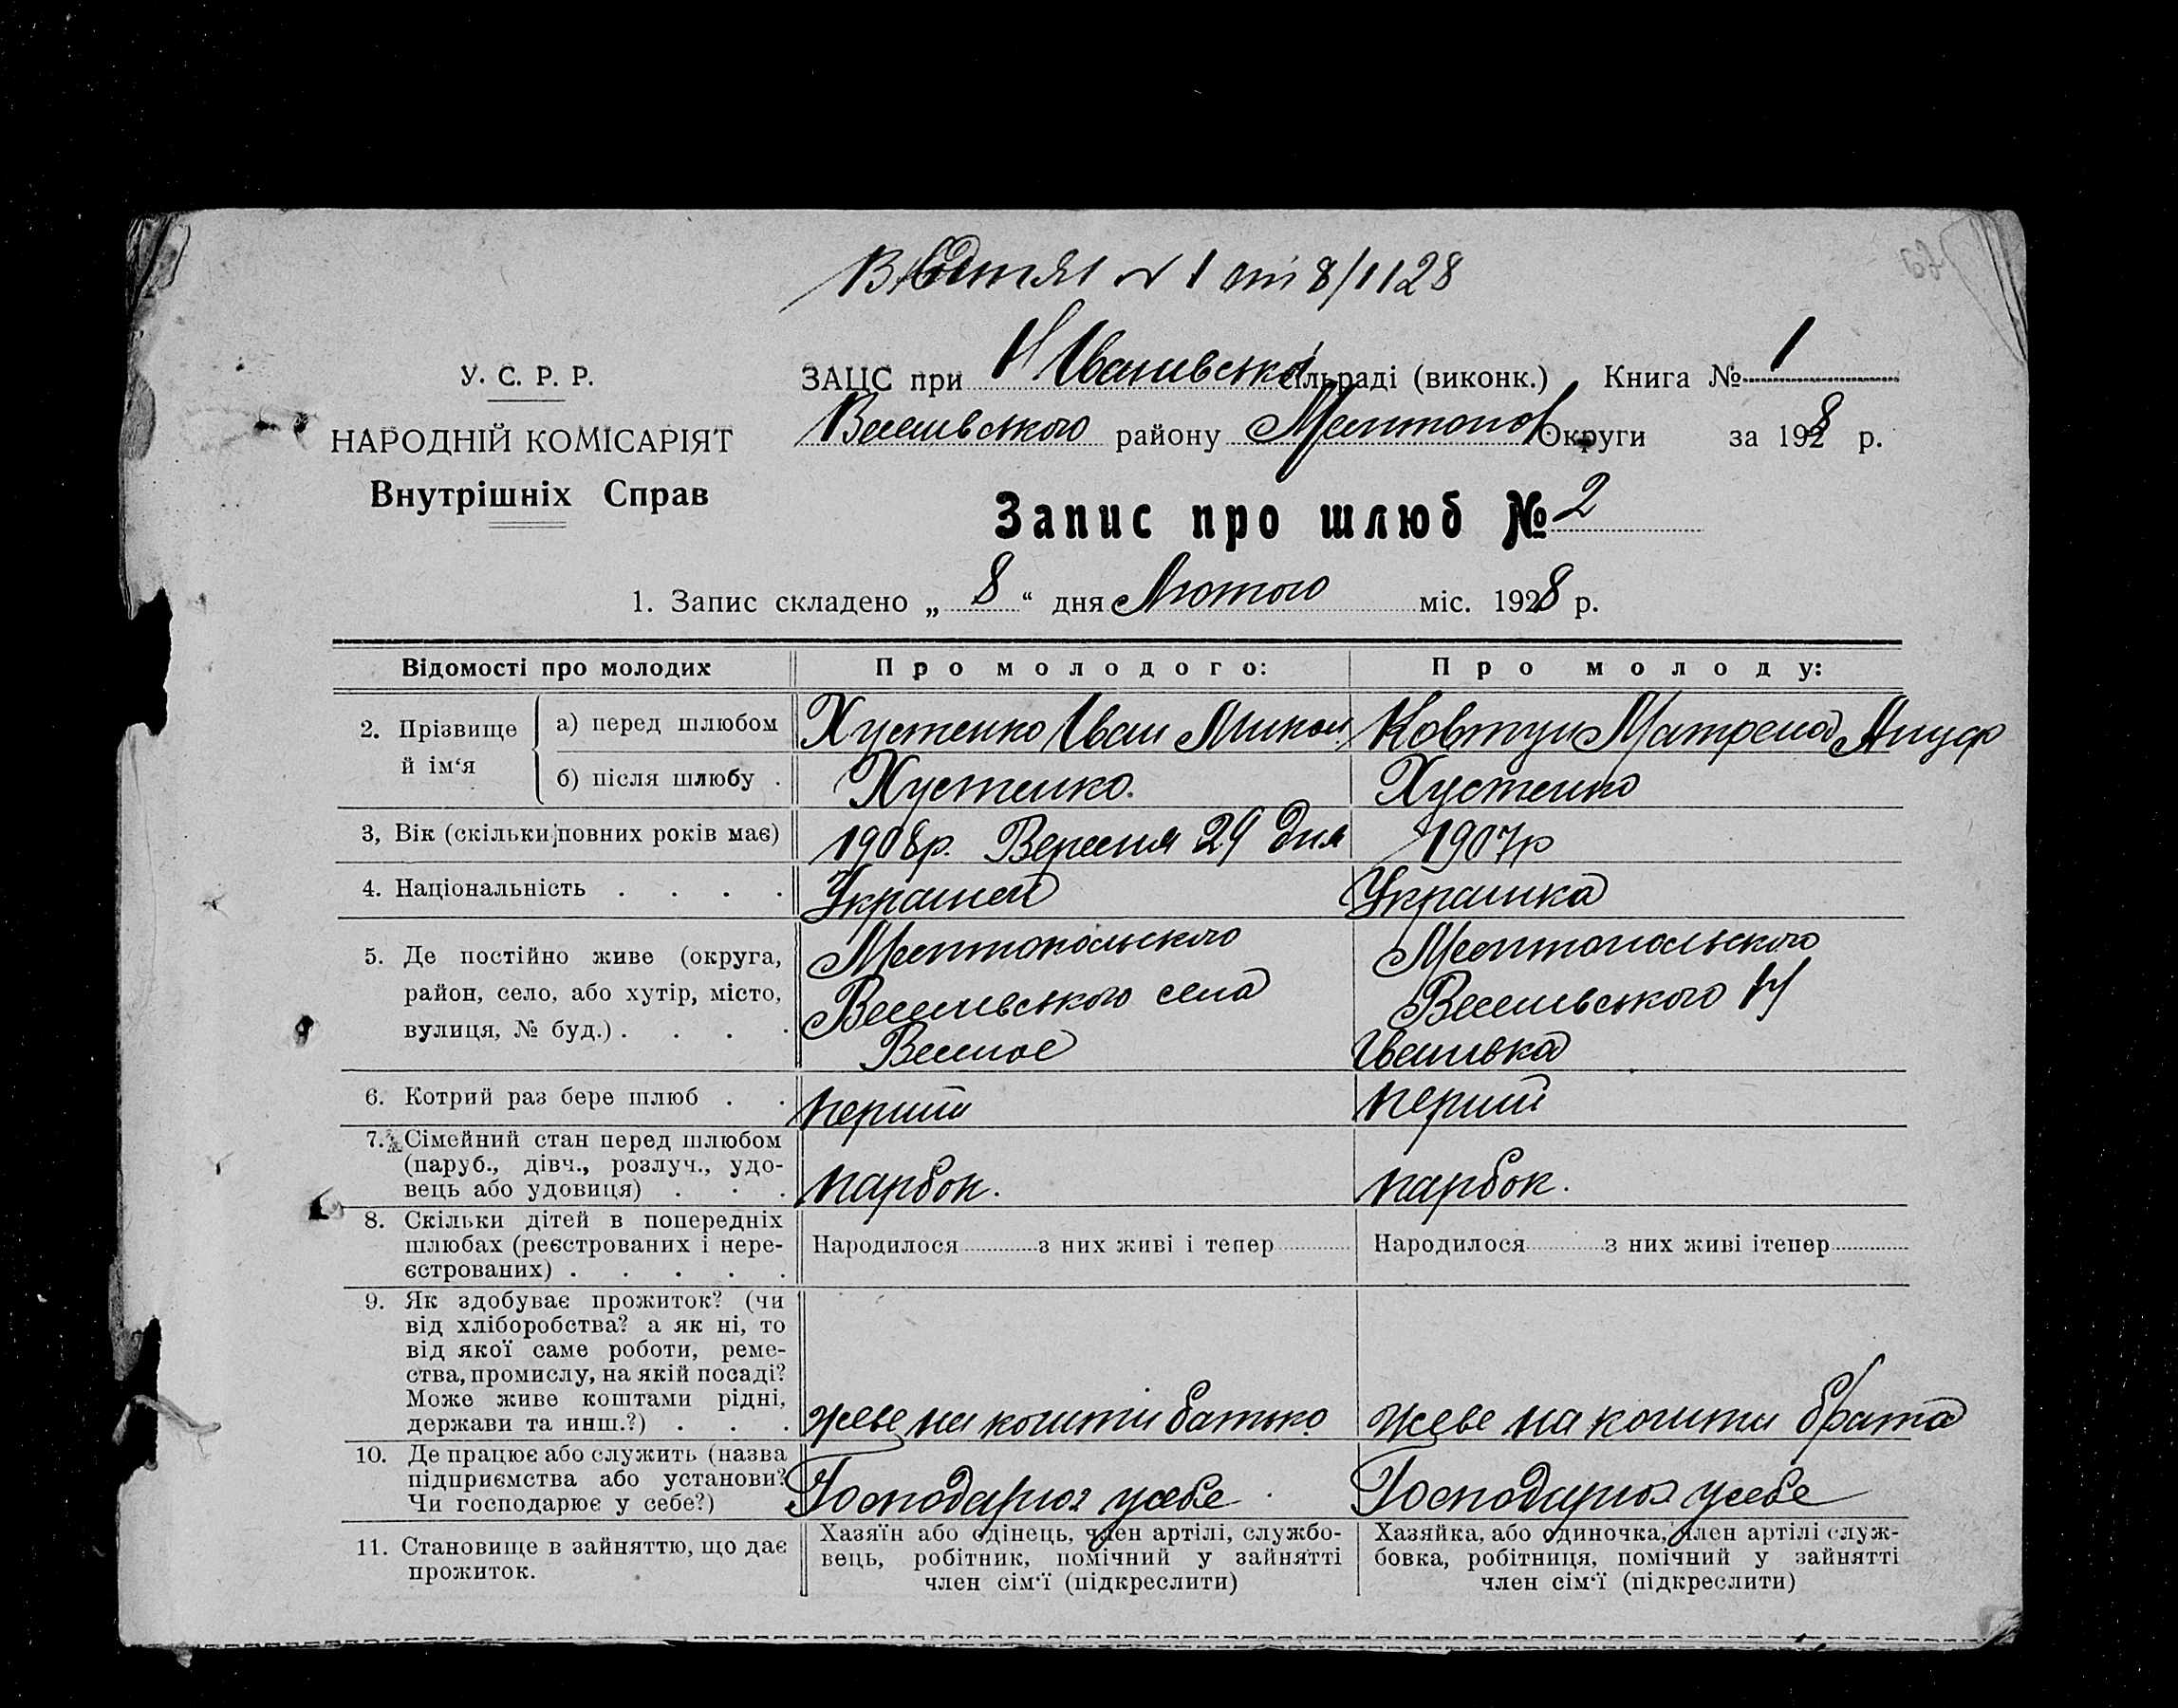 № 1 від 8/II 28
У. С. Р. Р.
НАРОДНІЙ КОМІСАРІЯТ
Внутрішніх Справ
ЗАЦС при Н Іванивська сільраді (виконк.) Книга № 1
Веселивського району Мелитопол Округи за 1928 р.
Запис про шлюб № 2
1. Запис складено „ 8 “ дня Лютого міс. 1928 р.
Відомості про молодих
Про молодого:
Про молоду:
2. Прізвище й ім‘я
а) перед шлюбом
Хустенко Іван Микол
Ковтун Матрена Ануф
б) після шлюбу .
Хустенко.
Хустенко
3, Вік (скільки повних років має)
1908р. Вересня 29 дня
1907р
4. Національність . . . .
Украинец
Украинка
5. Де постійно живе (округа,
район, село, або хутір, місто,
вулиця, № буд.) . . . .
Мелитопольского
Веселивського села
Веселое
Мелитопольского
Веселивського Н
Іванивка
6. Котрий раз бере шлюб . .
перший
перший
7. Сімейний стан перед шлюбом
(паруб., дівч., розлуч., удо-
вець або удовиця) . . .
парбок.
парбок.
8. Скільки дітей в попередніх
шлюбах (реєстрованих і нере-
єстрованих) . . . . .
Народилося ........ з них живі і тепер ........
Народилося ........ з них живі ітепер ........
9. Як здобуває прожиток? (чи
від хліборобства? а як ні, то
від якої саме роботи, реме-
ства, промислу, на якій посаді?
Може живе коштами рідні,
держави та инш.?) . . .
жеве на кошти батько
жеве на кошти брата
10. Де працює або служить (назва
підприємства або установи?
Чи господарює у себе?)
Господарює усебе
Господарює усебе
11. Становище в зайняттю, що дає
прожиток.
Хазяїн або одінець, член артілі, службо-
вець, робітник, помічний у зайнятті
член сім‘ї (підкреслити)
Хазяйка, або одиночка, член артілі служ-
бовка, робітниця, помічний у зайнятті
член сім‘ї (підкреслити)